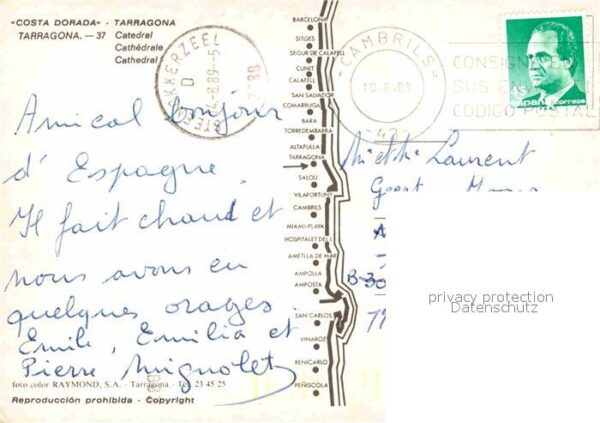 "COSTA DORADA" - TARRAGONA
TARRAGONA. — 37 Catedral
Cathédrale
Cathedral
Amical bonjour
d'Espagne
Il fait chaud et
nous avons eu
quelques orages.
Emile, Emilia et
Pierre Mignolet
foto color RAYMOND, S.A. - Tarragona - Tel. 23 45 25
Reproducción prohibida - Copyright
BARCELONA
SITGES
SEGUR DE CALAFELL
CUNIT
CALAFELL
SAN SALVADOR
COMARRUGA
BARA
TORREDEMBARRA
ALTAFULLA
TARRAGONA
SALOU
VILAFORTUNY
CAMBRILS
MIAMI-PLAYA
HOSPITALET DEL I.
AMETLLA DE MAR
AMPOLLA
AMPOSTA
SAN CARLOS
VINAROZ
BENICARLO
PEÑISCOLA
CAMBRILS
CONSIGNE
SUS EN
CODIGO POSTAL
España correos
Laurent
B-30
privacy protection
Datenschutz